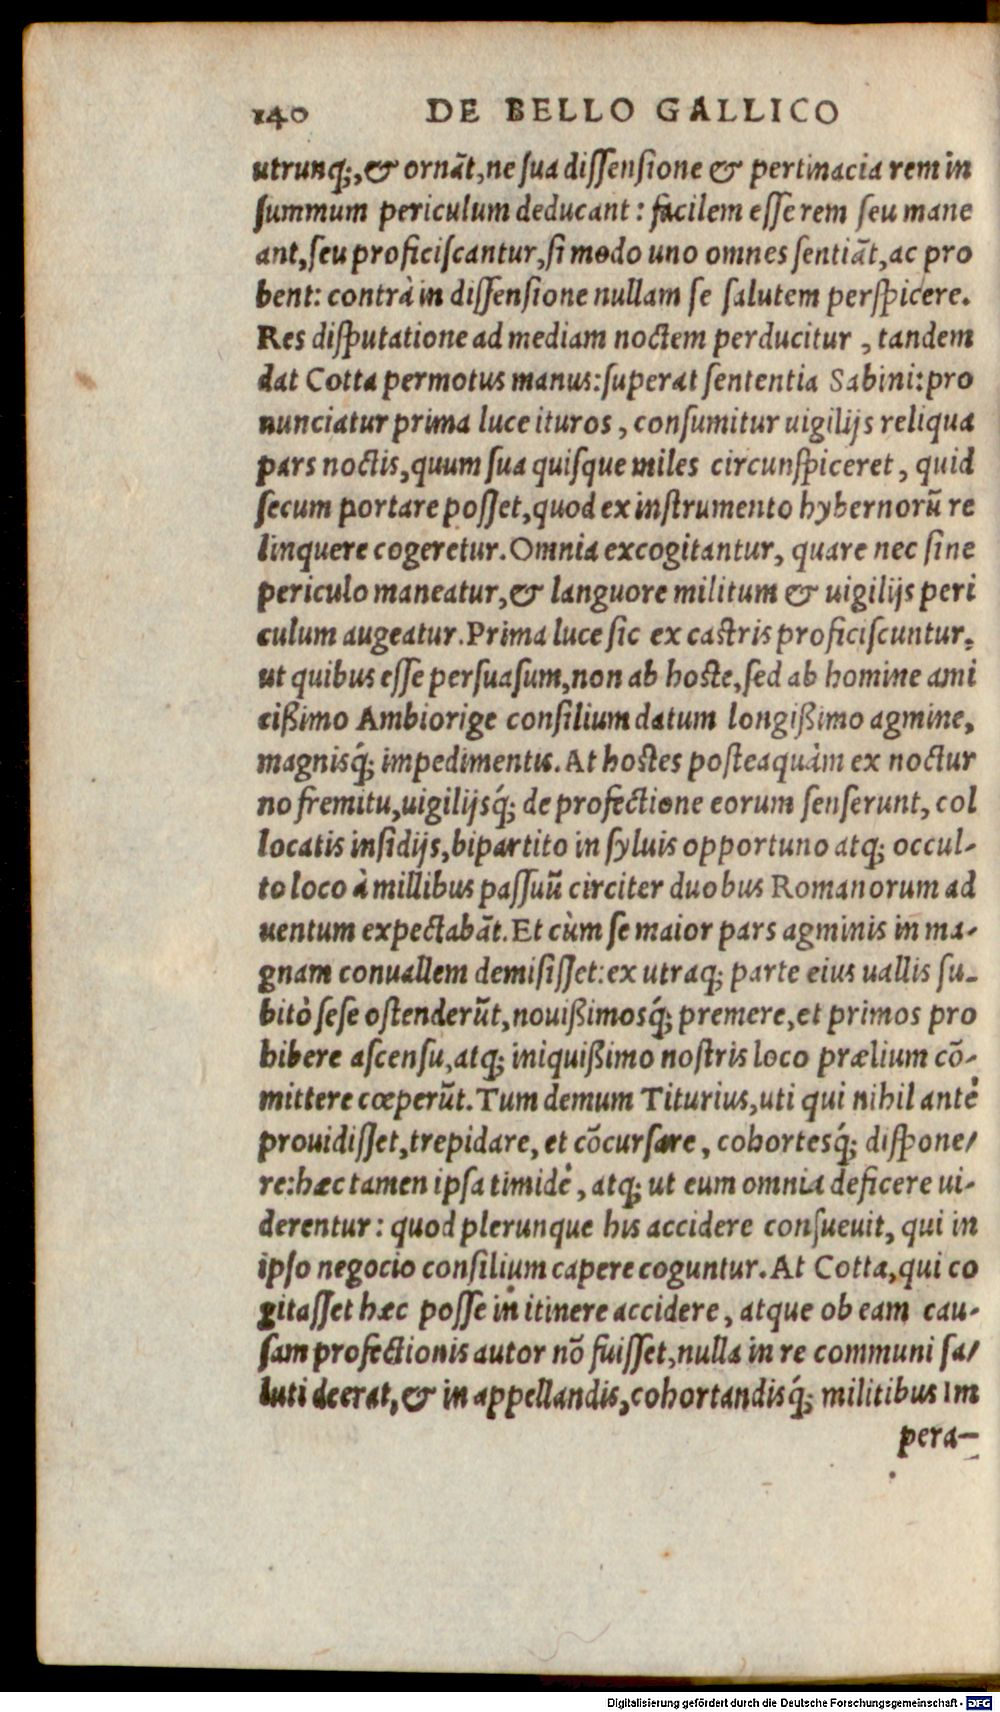 140 DE BELLO GALLICO
utrunq;, & ornãt, ne sua dissensione & pertinacia rem in
summum periculum deducant: facilem esse rem seu mane
ant, seu proficiscantur, si modo uno omnes sentiãt, ac pro
bent: contrà in dissensione nullam se salutem perspicere.
Res disputatione ad mediam noctem perducitur, tandem
dat Cotta permotus manus: superat sententia Sabini: pro
nunciatur prima luce ituros, consumitur uigilijs reliqua
pars noctis, quum sua quisque miles circunspiceret, quid
secum portare posset, quod ex instrumento hybernorũ re
linquere cogeretur. Omnia excogitantur, quare nec sine
periculo maneatur, & languore militum & uigilijs peri
culum augeatur. Prima luce sic ex castris proficiscuntur,
ut quibus esse persuasum, non ab hoste, sed ab homine ami
cißimo Ambiorige consilium datum longißimo agmine,
magnisq́; impedimentis. At hostes posteaquàm ex noctur
no fremitu, uigilijsq́; de profectione eorum senserunt, col
locatis insidijs, bipartito in syluis opportuno atq; occul-
to loco à millibus passuũ circiter duobus Romanorum ad
uentum expectabãt. Et cùm se maior pars agminis in ma-
gnam conuallem demisisset: ex utraq; parte eius uallis su-
bitò sese ostenderũt, nouißimosq́; premere, et primos pro
hibere ascensu, atq; iniquißimo nostris loco prælium cõ-
mittere cœperũt. Tum demum Titurius, uti qui nihil antè
prouidisset, trepidare, et cõcursare, cohortesq́; dispone/
re: hæc tamen ipsa timidè, atq; ut eum omnia deficere ui-
derentur: quod plerunque his accidere consueuit, qui in
ipso negocio consilium capere coguntur. At Cotta, qui co
gitasset hæc posse in itinere accidere, atque ob eam cau-
sam profectionis autor nõ fuisset, nulla in re communi sa/
luti deerat, & in appellandis, cohortandisq́; militibus Im
pera-
Digitalisierung gefördert durch die Deutsche Forschungsgemeinschaft - DFG